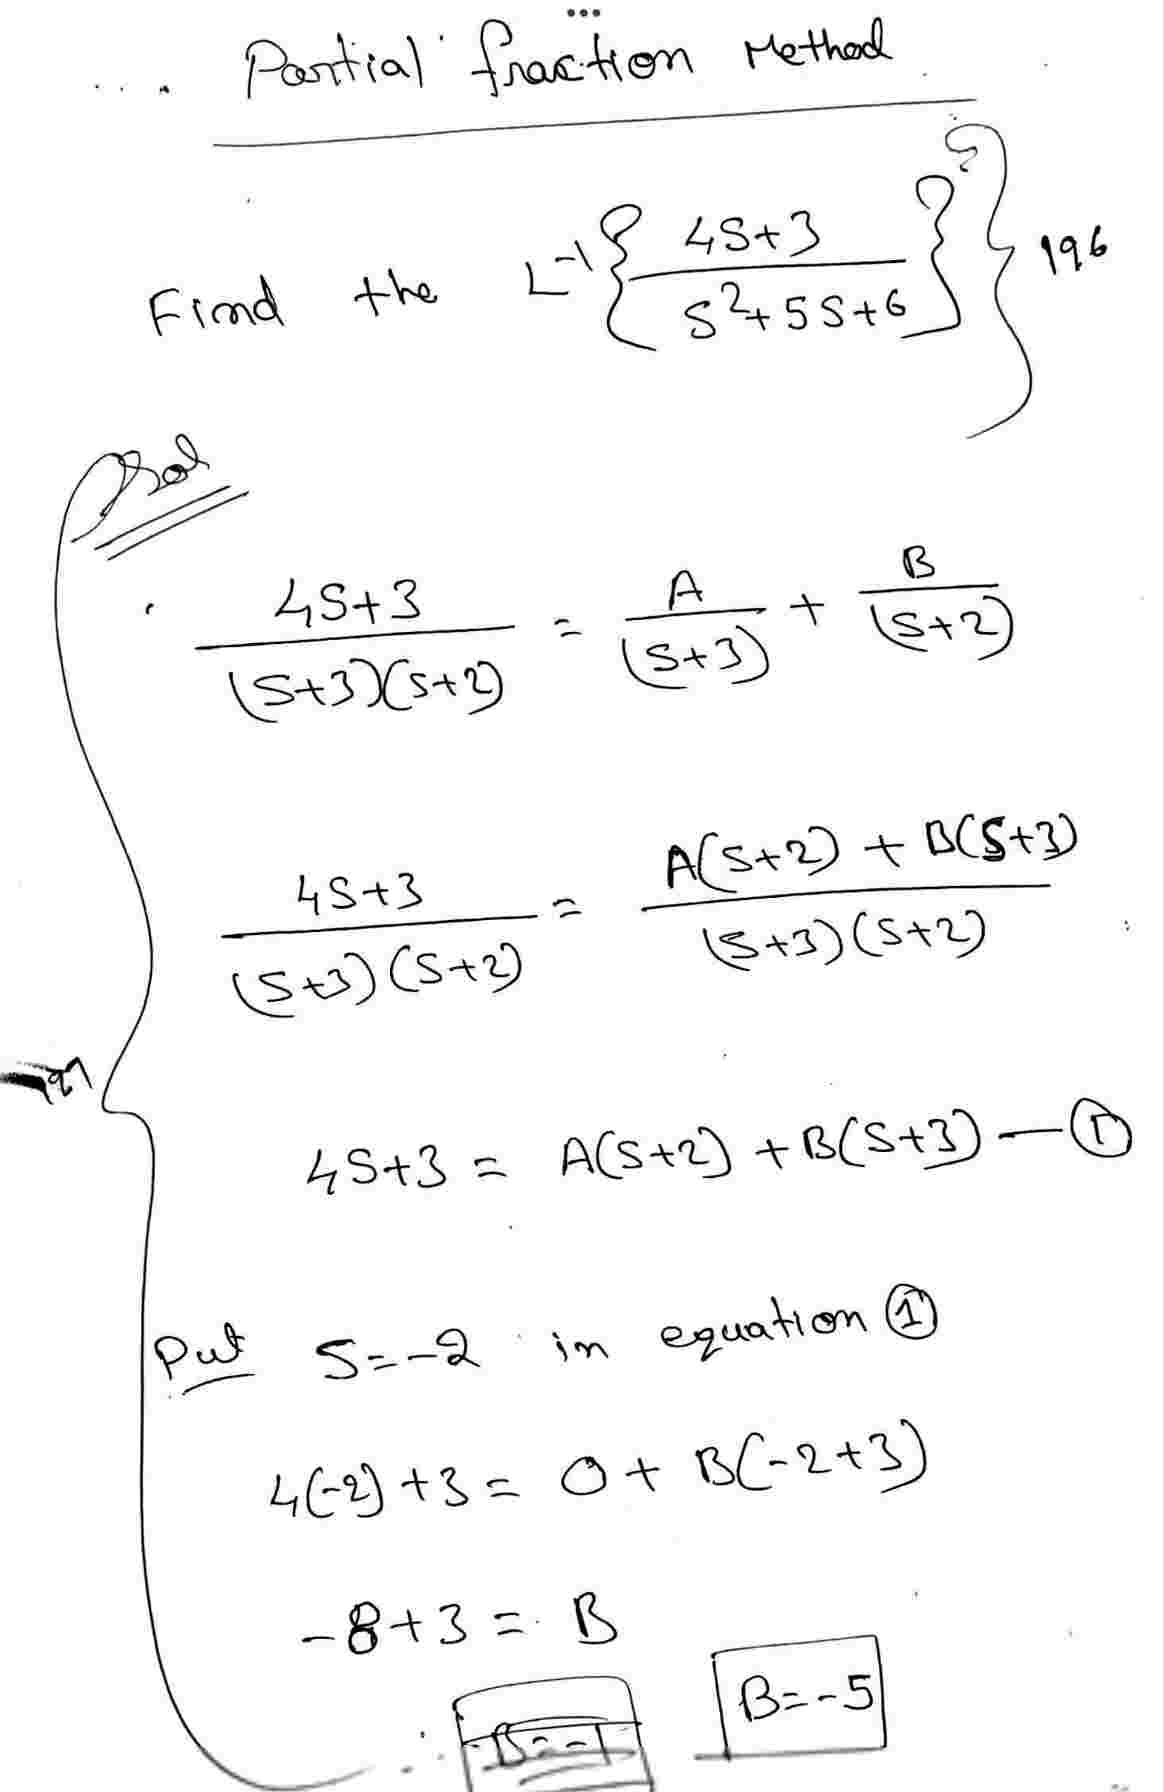 Partial fraction Method
Find the L⁻¹{ (4S+3)/(S²+5S+6) } 196
Sol
(4S+3)/((S+3)(S+2)) = A/(S+3) + B/(S+2)
(4S+3)/((S+3)(S+2)) = (A(S+2) + B(S+3))/((S+3)(S+2))
4S+3 = A(S+2) + B(S+3) — ①
Put S=-2 in equation ①
4(-2)+3 = 0 + B(-2+3)
-8+3 = B
B=-5